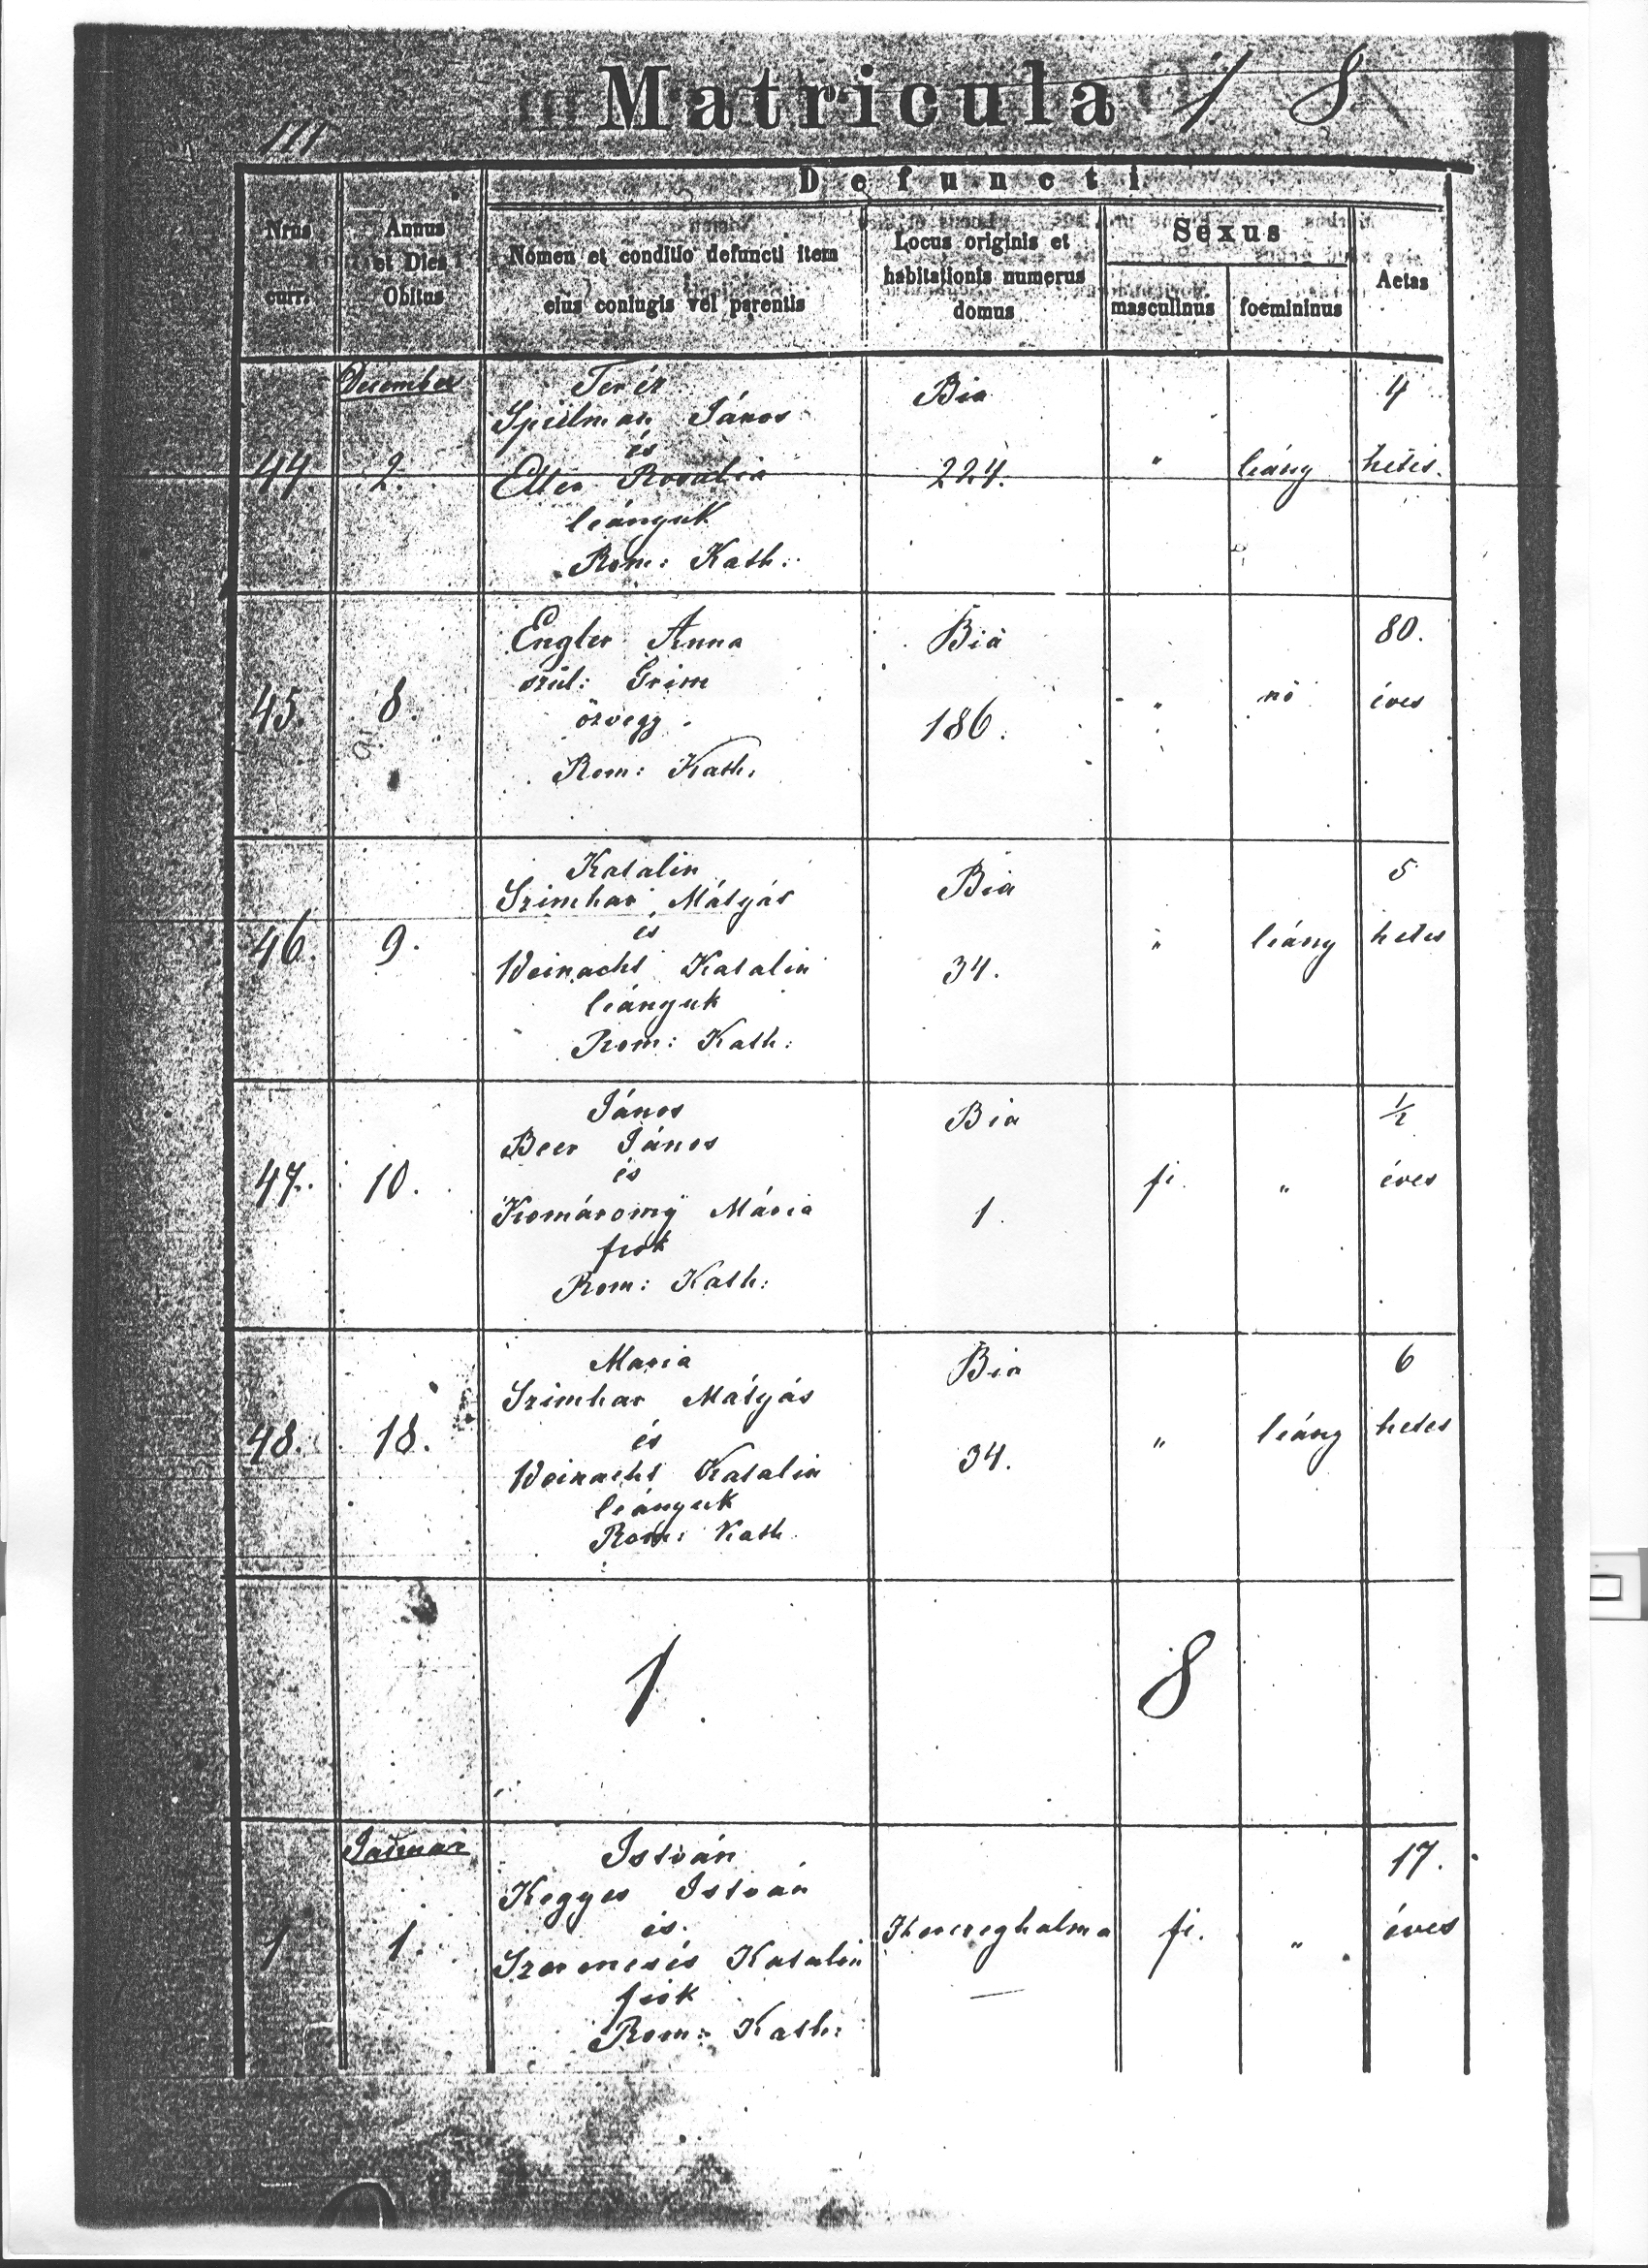 Matricula 1 8
111
Defuncti
Nrus curr.
Annus et Dies Obitus
Nomen et conditio defuncti item
eius coniugis vel parentis
Locus originis et
habitationis numerus
domus
Sexus
masculinus
foemininus
Aetas
December
44 2.
Teréz
Spielman János
és
Elter Rosalia
leányuk
Rom: Kath:
Bia
224.
"
leány
4
hetes.
45. 8.
Engler Anna
szül: Grim
özvegy.
Rom: Kath.
Bia
186.
"
nő
80.
éves
46. 9.
Katalin
Szimhar Mátyás
és
Weinacht Katalin
leányuk
Rom: Kath:
Bia
34.
"
leány
5
hetes
47. 10.
János
Beer János
és
Komáromy Mária
fiok
Rom: Kath:
Bia
1.
fi.
"
1/2
éves
48. 18.
Maria
Szimhar Mátyás
és
Weinacht Katalin
leányuk
Rom: Kath
Bia
34.
"
leány
6
hetes
1 8
Januar
1 1.
István
Kegyes István
és
Katalin
fiok
Rom: Kath:
fi.
"
17.
éves